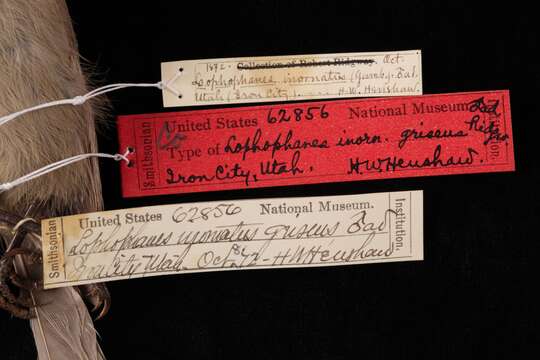 1872. Collection of Robert Ridgway. Oct.
Lophophanes inornatus (Gamb.) Bd.
Utah (Iron City). H.W. Henshaw.
Smithsonian
United States 62856 National Museum.
Co Type of Lophophanes inorn. griseus
Iron City, Utah. H.W. Henshaw.
Smithsonian
United States 62856 National Museum.
Lophophanes inornatus griseus
Iron City Utah. Oct 72 - HW Henshaw
Institution.